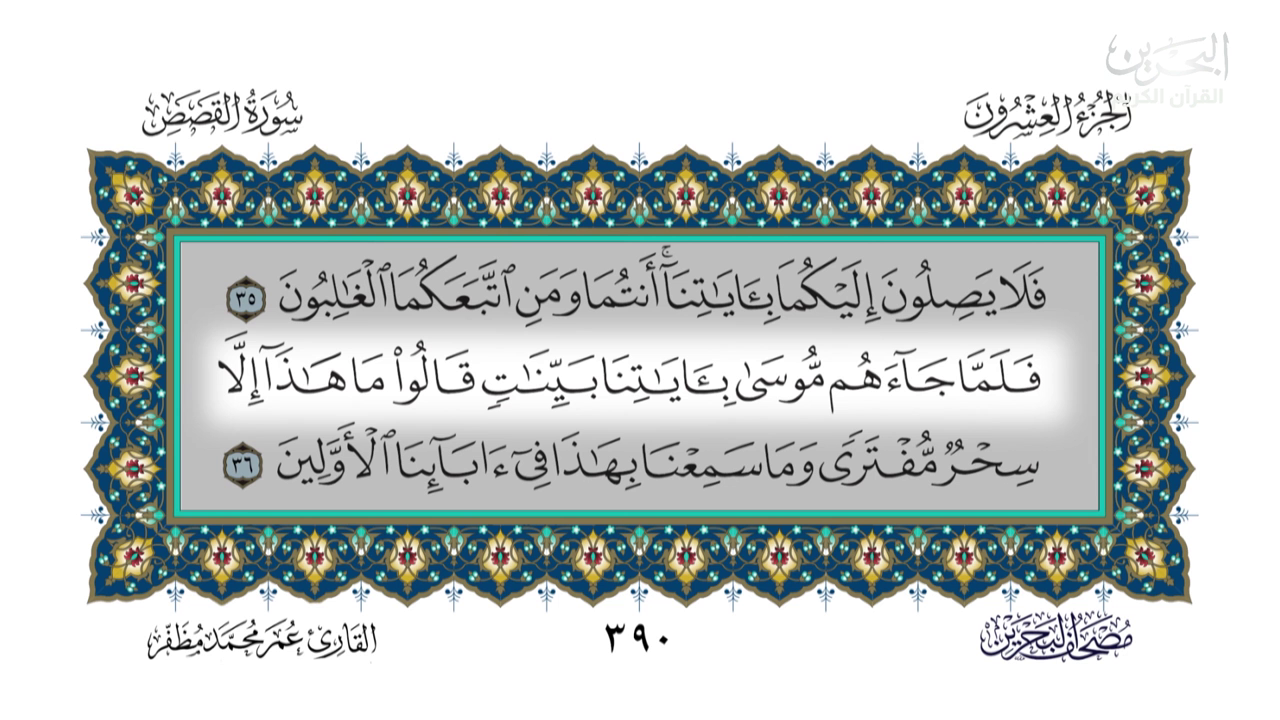 البحرين
القرآن الكريم
الجُزْءُ العِشْرُونَ
سُورَةُ القَصَصِ
فَلَا يَصِلُونَ إِلَيْكُمَا بِـَٔايَٰتِنَآۚ أَنتُمَا وَمَنِ ٱتَّبَعَكُمَا ٱلْغَٰلِبُونَ ٣٥
فَلَمَّا جَآءَهُم مُّوسَىٰ بِـَٔايَٰتِنَا بَيِّنَٰتٍ قَالُوا۟ مَا هَٰذَآ إِلَّا
سِحْرٌ مُّفْتَرًى وَمَا سَمِعْنَا بِهَٰذَا فِىٓ ءَابَآئِنَا ٱلْأَوَّلِينَ ٣٦
مُصْحَفُ البَحْرَيْنِ
٣٩٠
القَارِئ عُمَر مُحَمَّد مُظَفَّر